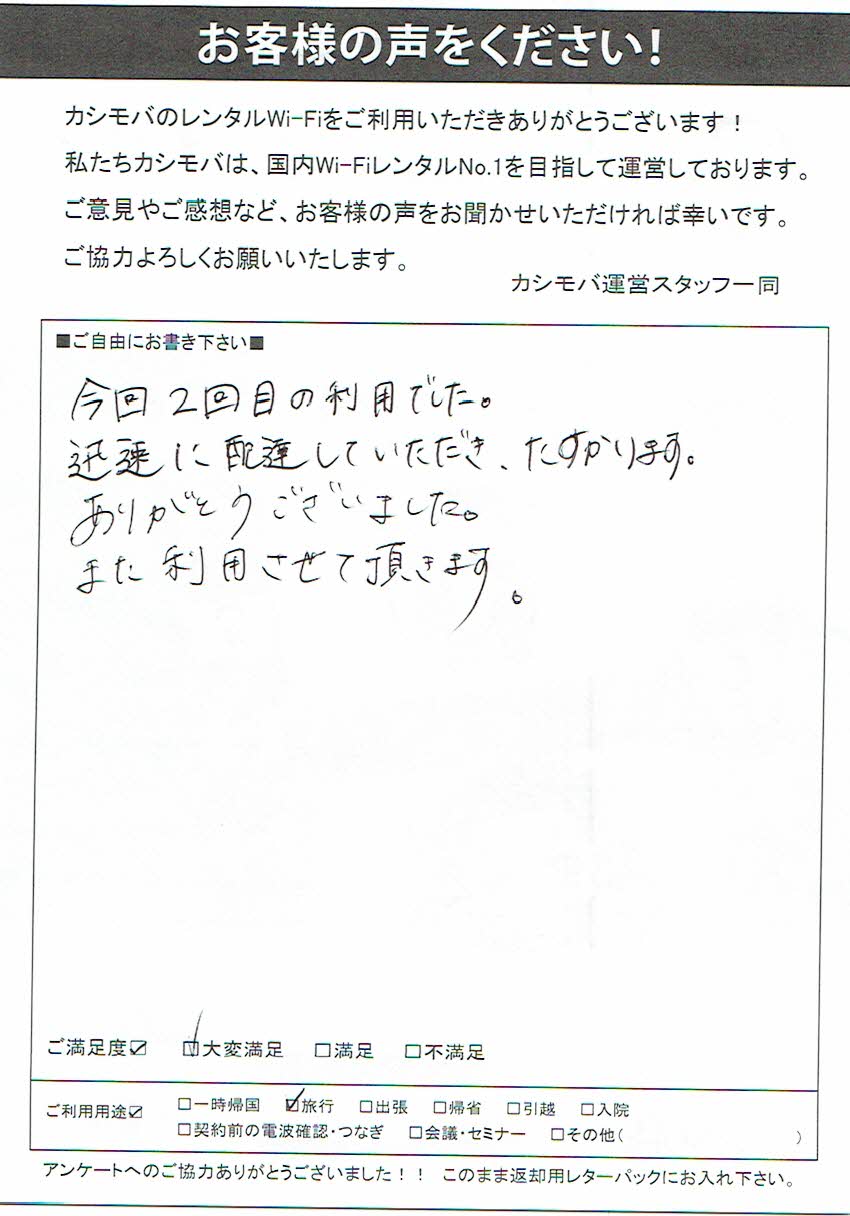 お客様の声をください!
カシモバのレンタルWi-Fiをご利用いただきありがとうございます!
私たちカシモバは、国内Wi-FiレンタルNo.1を目指して運営しております。
ご意見やご感想など、お客様の声をお聞かせいただければ幸いです。
ご協力よろしくお願いいたします。
カシモバ運営スタッフ一同
■ご自由にお書き下さい■
今回2回目の利用でした。
迅速に配達していただき、たすかります。
ありがとうございました。
また利用させて頂きます。
ご満足度☑ ☑大変満足 □満足 □不満足
ご利用用途☑ □一時帰国 ☑旅行 □出張 □帰省 □引越 □入院
□契約前の電波確認・つなぎ □会議・セミナー □その他( )
アンケートへのご協力ありがとうございました!! このまま返却用レターパックにお入れ下さい。